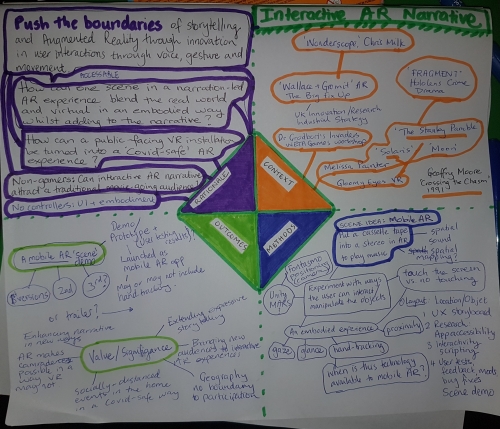 Push the boundaries of storytelling
and Augmented Reality through innovation
in user interactions through voice, gesture and
movement.
ACCESSABLE
How can one scene in a narration-led
AR experience blend the real world
and virtual in an embodied way
whilst adding to the narrative?
How can a public facing VR installation
be turned into a Covid-safe AR
experience?
Non-gamers: Can interactive AR narrative
attract a traditional movie-going audience
No controllers: UI + embodiment
RATIONALE
Interactive AR Narrative.
'Wonderscope' Chris Milk
Wallace + Gromit AR
The Big Fix Up
UK Innovation/Research
Industrial Strategy
'FRAGMENTS'
Hololens Crime
Drama
Dr Grodbort's Invaders
'The Stanley Parable'
'Solaris'
Moon
Melissa Painter
Gloomy Eyes VR
Geoffrey Moore
Crossing the Chasm
1991
CONTEXT
OUTCOMES
A mobile AR scene
demo
Demo/
Prototype
Launched as
mobile AR app
May or may not include
hand tracking.
2nd
3rd?
or trailer?
Enhancing narrative
in new ways
AR makes
possible in a
way VR
may not
Value/Significance
Extending expansive
story telling
Bringing new
audiences to interactive
AR experiences
Geography
no boundary
to participation
Socially-distanced
events in the home
in a covid-safe way
METHODS
SCENE IDEAS: Mobile AR
Put a cassette tape
into a stereo in AR
to play music
spatial
sound
spatial
mapping?
Unity
MARS
Experiment with ways
the user can interact
manipulate the objects
touch the screen
vs no touching
An embodied experience
proximity
gaze
glance
hand-tracking
When is this technology
available to mobile AR?
Location/Object
1 UX storyboard
2 Research
App accessibility
3 Interactivity
scripting
4 User tests,
feedback, mods
bug fixes
Scene demo